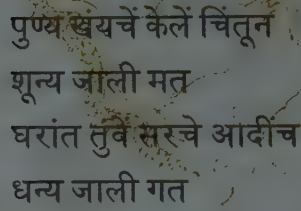 पुण्य खंयचें केलें चिंतून
शून्य जाली मत
घरांत तुंवे सरचे आदींच
धन्य जाली गत